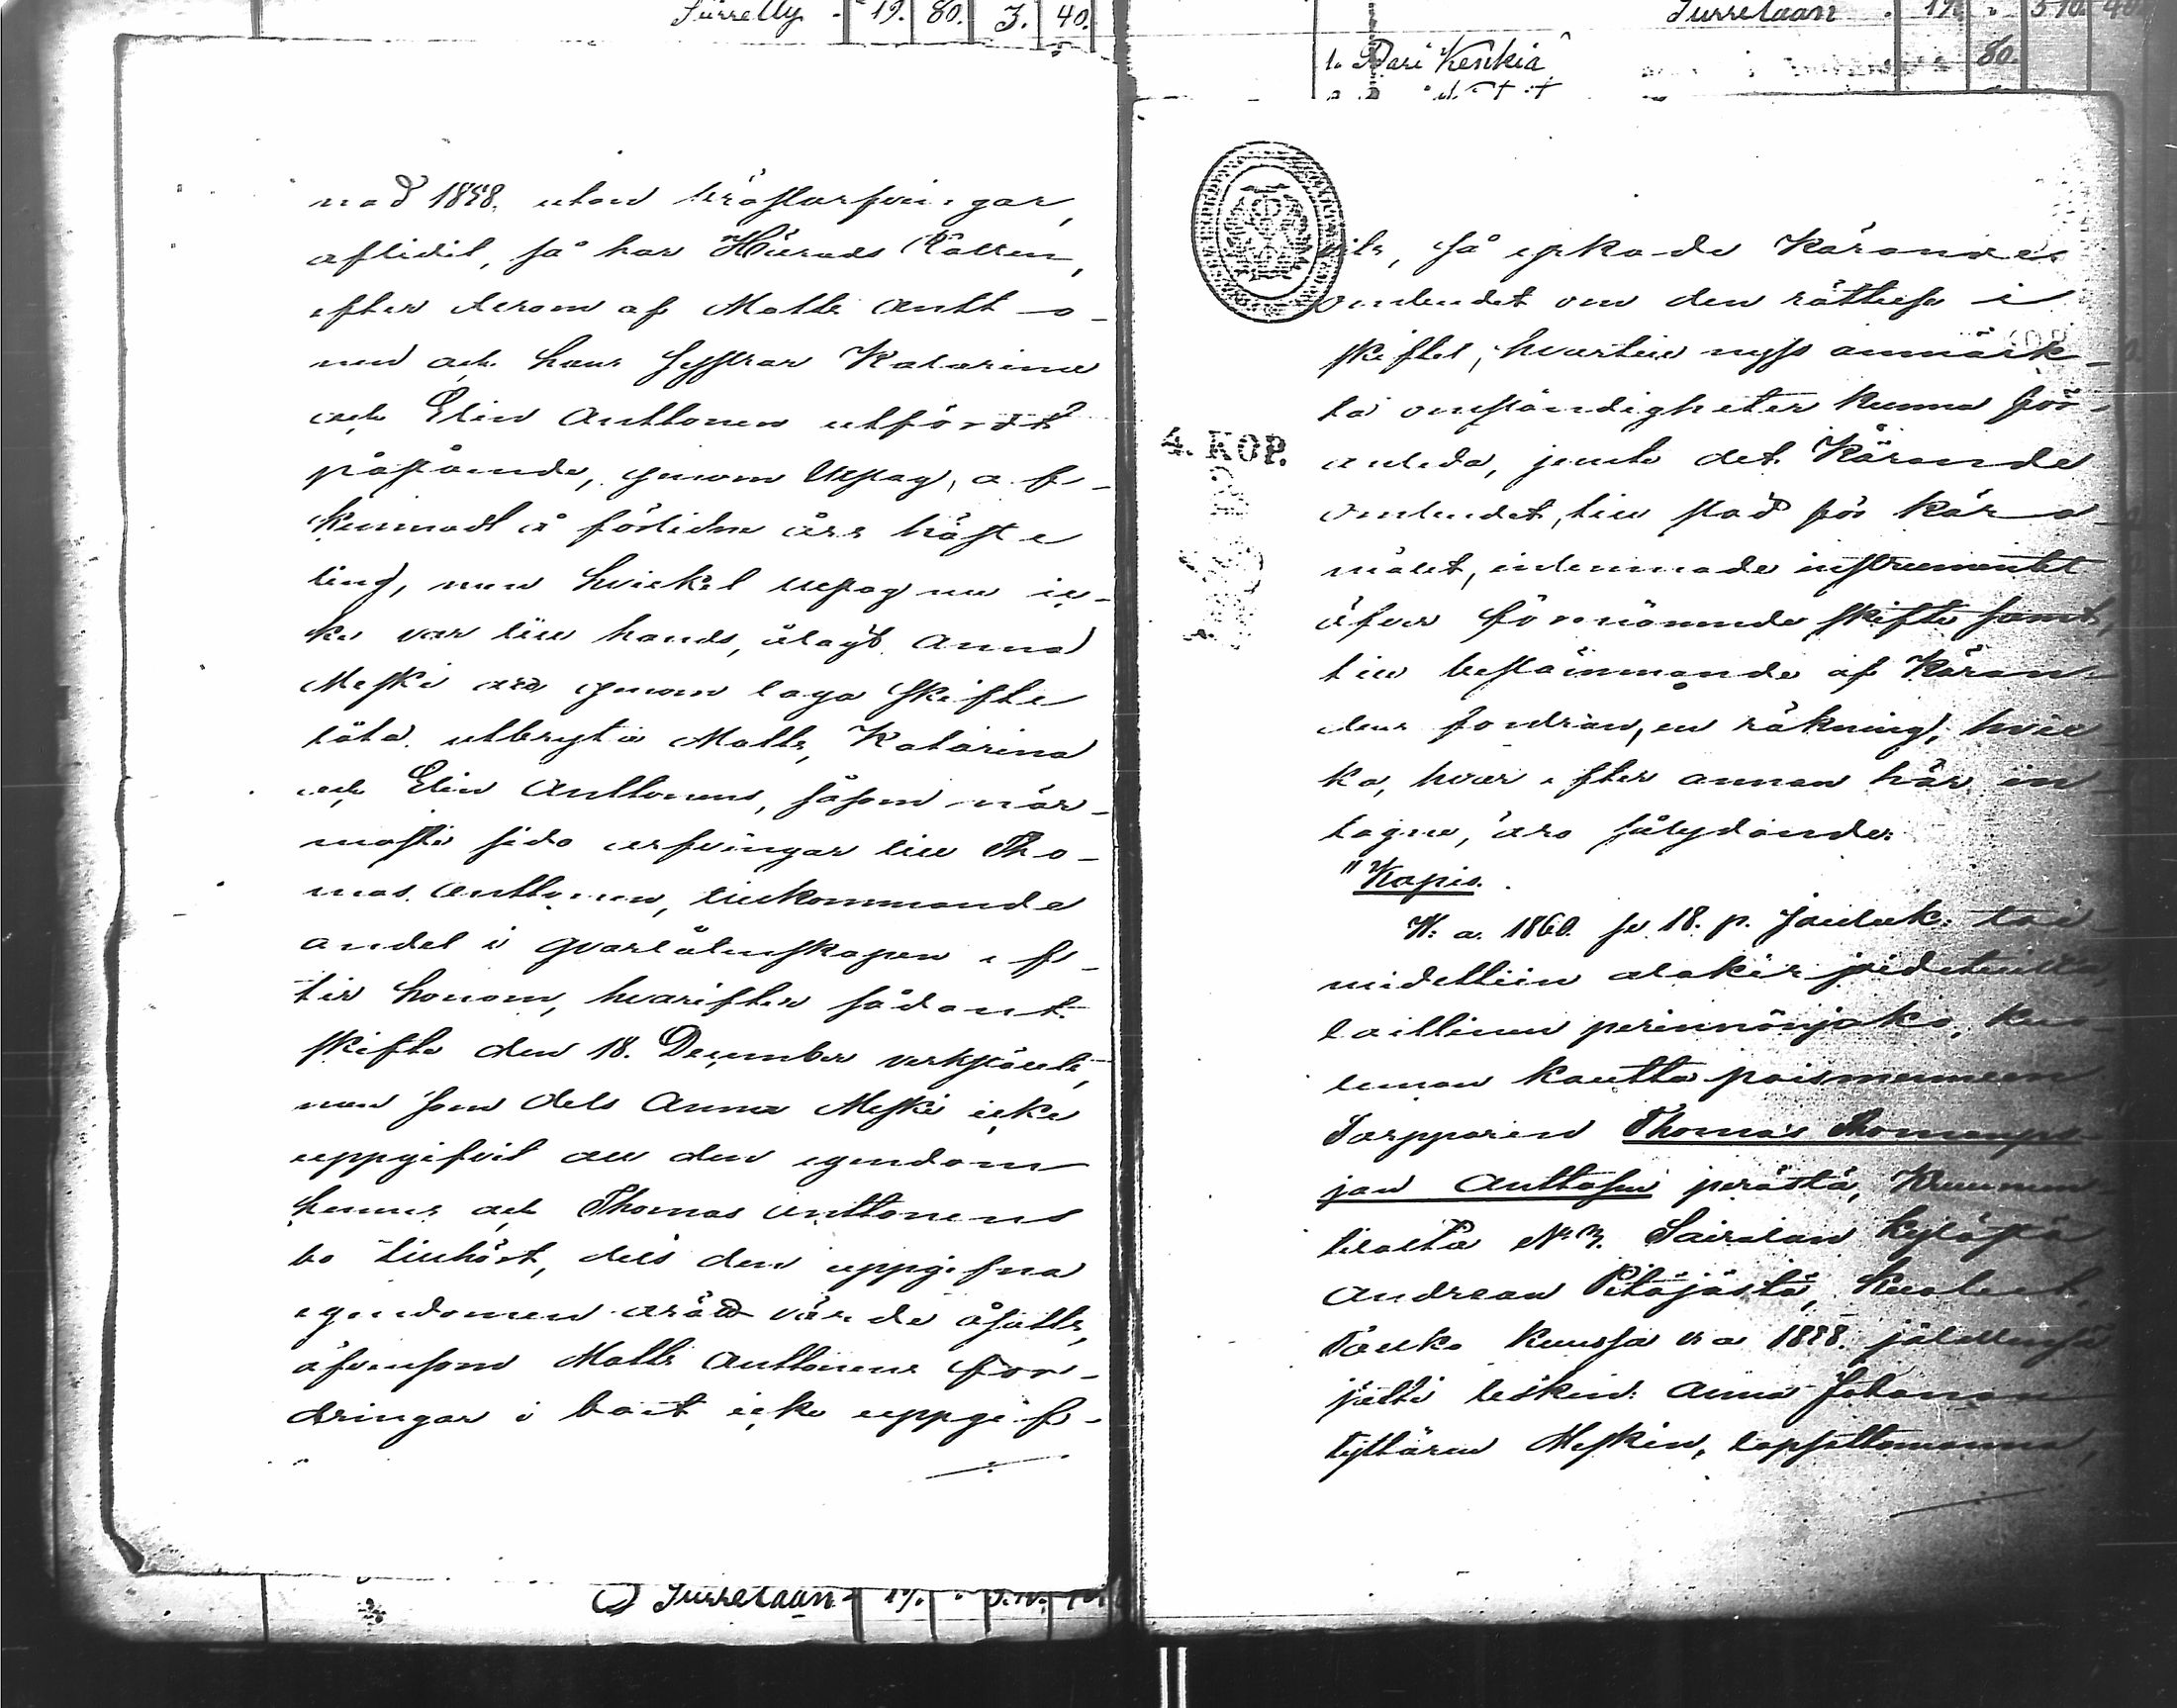 Siirretty 19. 80. 3. 40.
nad 1858. utan bröstarfvingar,
aflidit, så har Härads Rätten,
efter derom af Matts Antto-
nen och hans systrar Katarina
och Elin Anttonen utfördt
påstående, genom Utslag, af-
kunnadt å förlidne års höste
ting, men hvilket utslag nu ic-
ke var till hands, ålagt Anna
Meski att genom laga skifte
låta utbryta Matts, Katarina
och Elin Anttonens, såsom när-
maste sido arfvingar till Tho-
mas Anttonen, tillkommande
andel i qvarlåtenskapen ef-
ter honom, hvarefter sådant
skifte den 18. December verkstälts,
men som dels Anna Meski icke
uppgifvit all den egendom
hennes och Thomas Anttonens
bo tillhört, dels den uppgifna
egendomen orätt värde åsatts,
äfvensom Matts Anttonens for-
dringar i boet icke uppgif-
Siirretaan 19.
Siirretaan 19. 510. 40
1. Pari Kenkiä 80.
4. KOP.
vits, så yrkade Kärande
ombudet om den rättelse i
skiftet, hvartill nyss anmärk-
ta omständigheter kunna för-
anleda, jemte det Kärande
ombudet, till stöd för käro-
målet, inlemnade instrumentet
öfver förenämnde skifte samt,
till bestämmande af Käran-
dens fordran, en räkning, hvil-
ka, hvar efter annan här in-
tagne, äro sålydande:
"Kopia.
W. a. 1860. se 18. p. Jouluk. toi-
midettiin alakirjoidetuilta,
laillinen perinnönjako, kuo-
leman kautta poismenneen
Torpparin Thomas Thomanpo-
jan Anttosen perästä, Kruunun-
tilalta No 3. Sairalan kylästä
Andrean Pitäjästä, kuolut.
Touko kuussa v. a 1858. jälellensä
jätti leskin: Anna Johanan
tyttären Meskin, lapsettomanna,